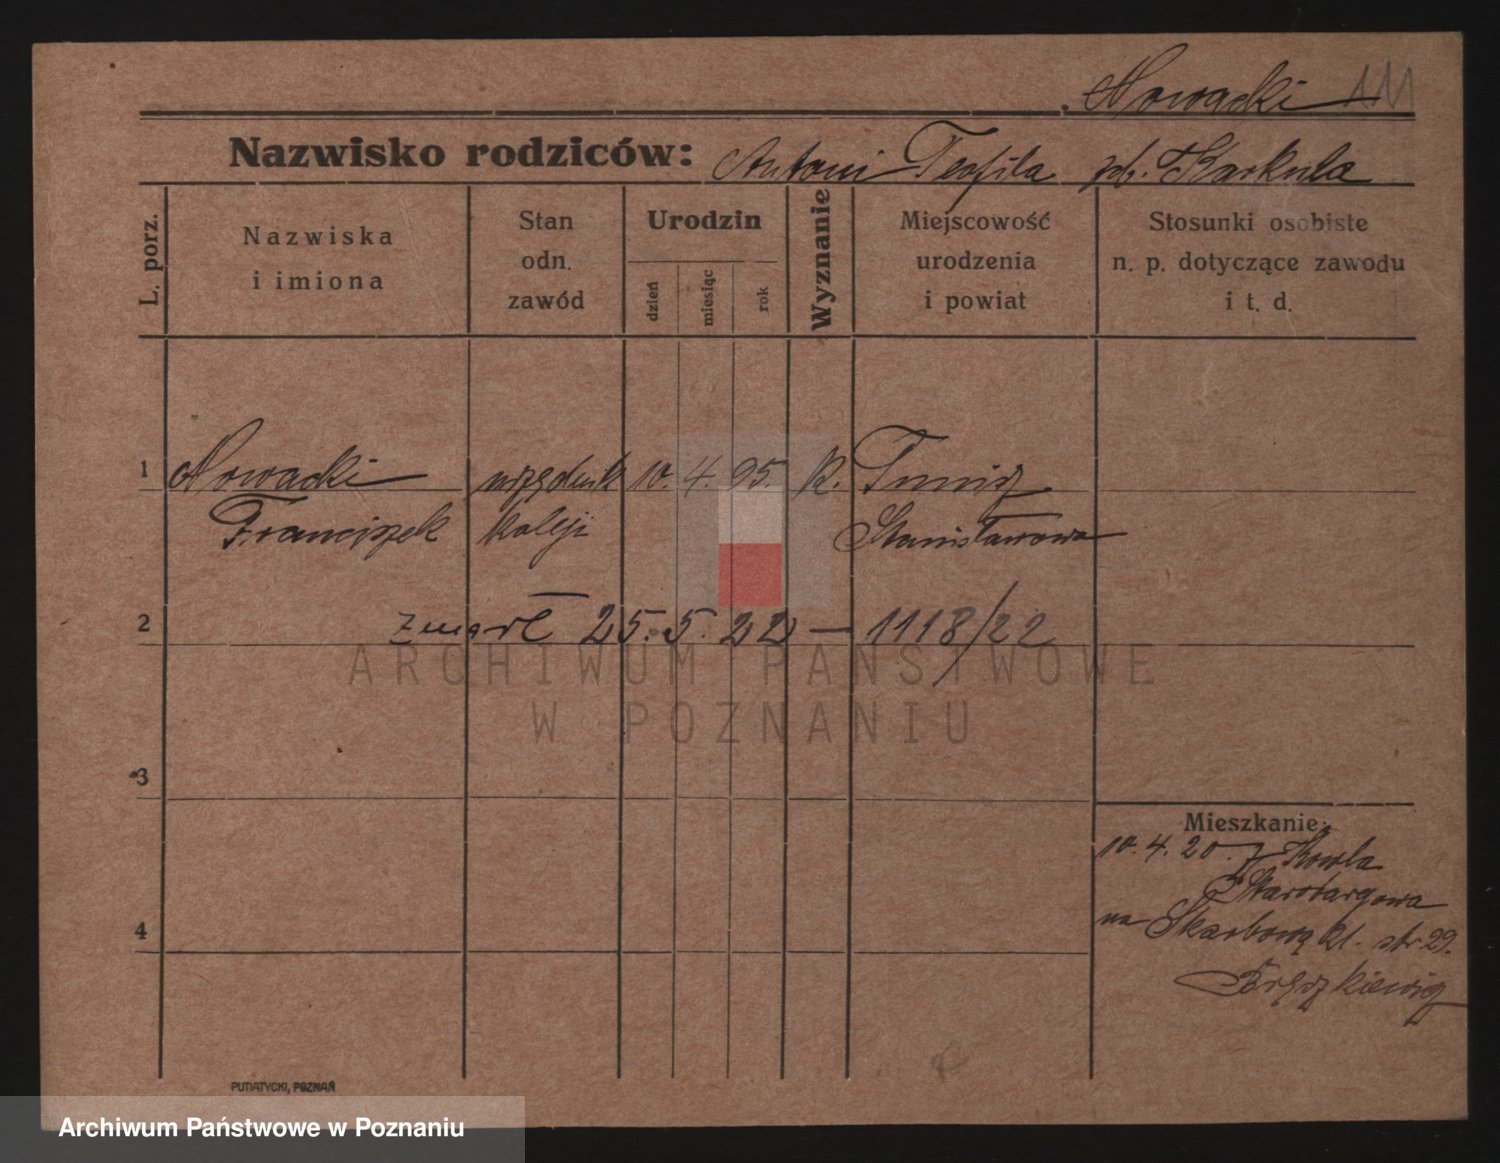 Nowacki 111
Nazwisko rodziców: Antoni Teofila zd. Karkula
L. porz.
Nazwiska
i imiona
Stan
odn.
zawód
Urodzin
dzień
miesiąc
rok
Wyznanie
Miejscowość
urodzenia
i powiat
Stosunki osobiste
n. p. dotyczące zawodu
i t. d.
1 Nowacki urzędnik 10. 4. 95. k.
Franciszek koleji Stanisławowa
2 zmarł 25. 5. 22 — 1118/22
ARCHIWUM PAŃSTWOWE
W POZNANIU
3
4
Mieszkanie:
10. 4. 20. z Kowla
Starotargowa
na Skarbową 21. str. 29.
PUTIATYCKI, POZNAŃ
Archiwum Państwowe w Poznaniu